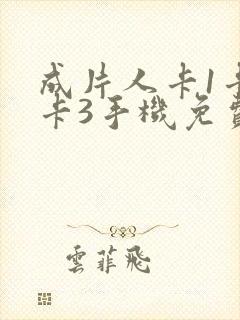 成片人卡1卡
卡3手機免費
雲菲飛